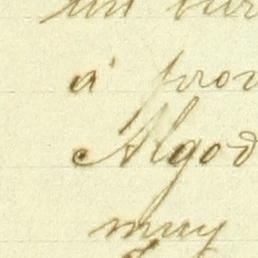 un bur
á prov
Algod
muy